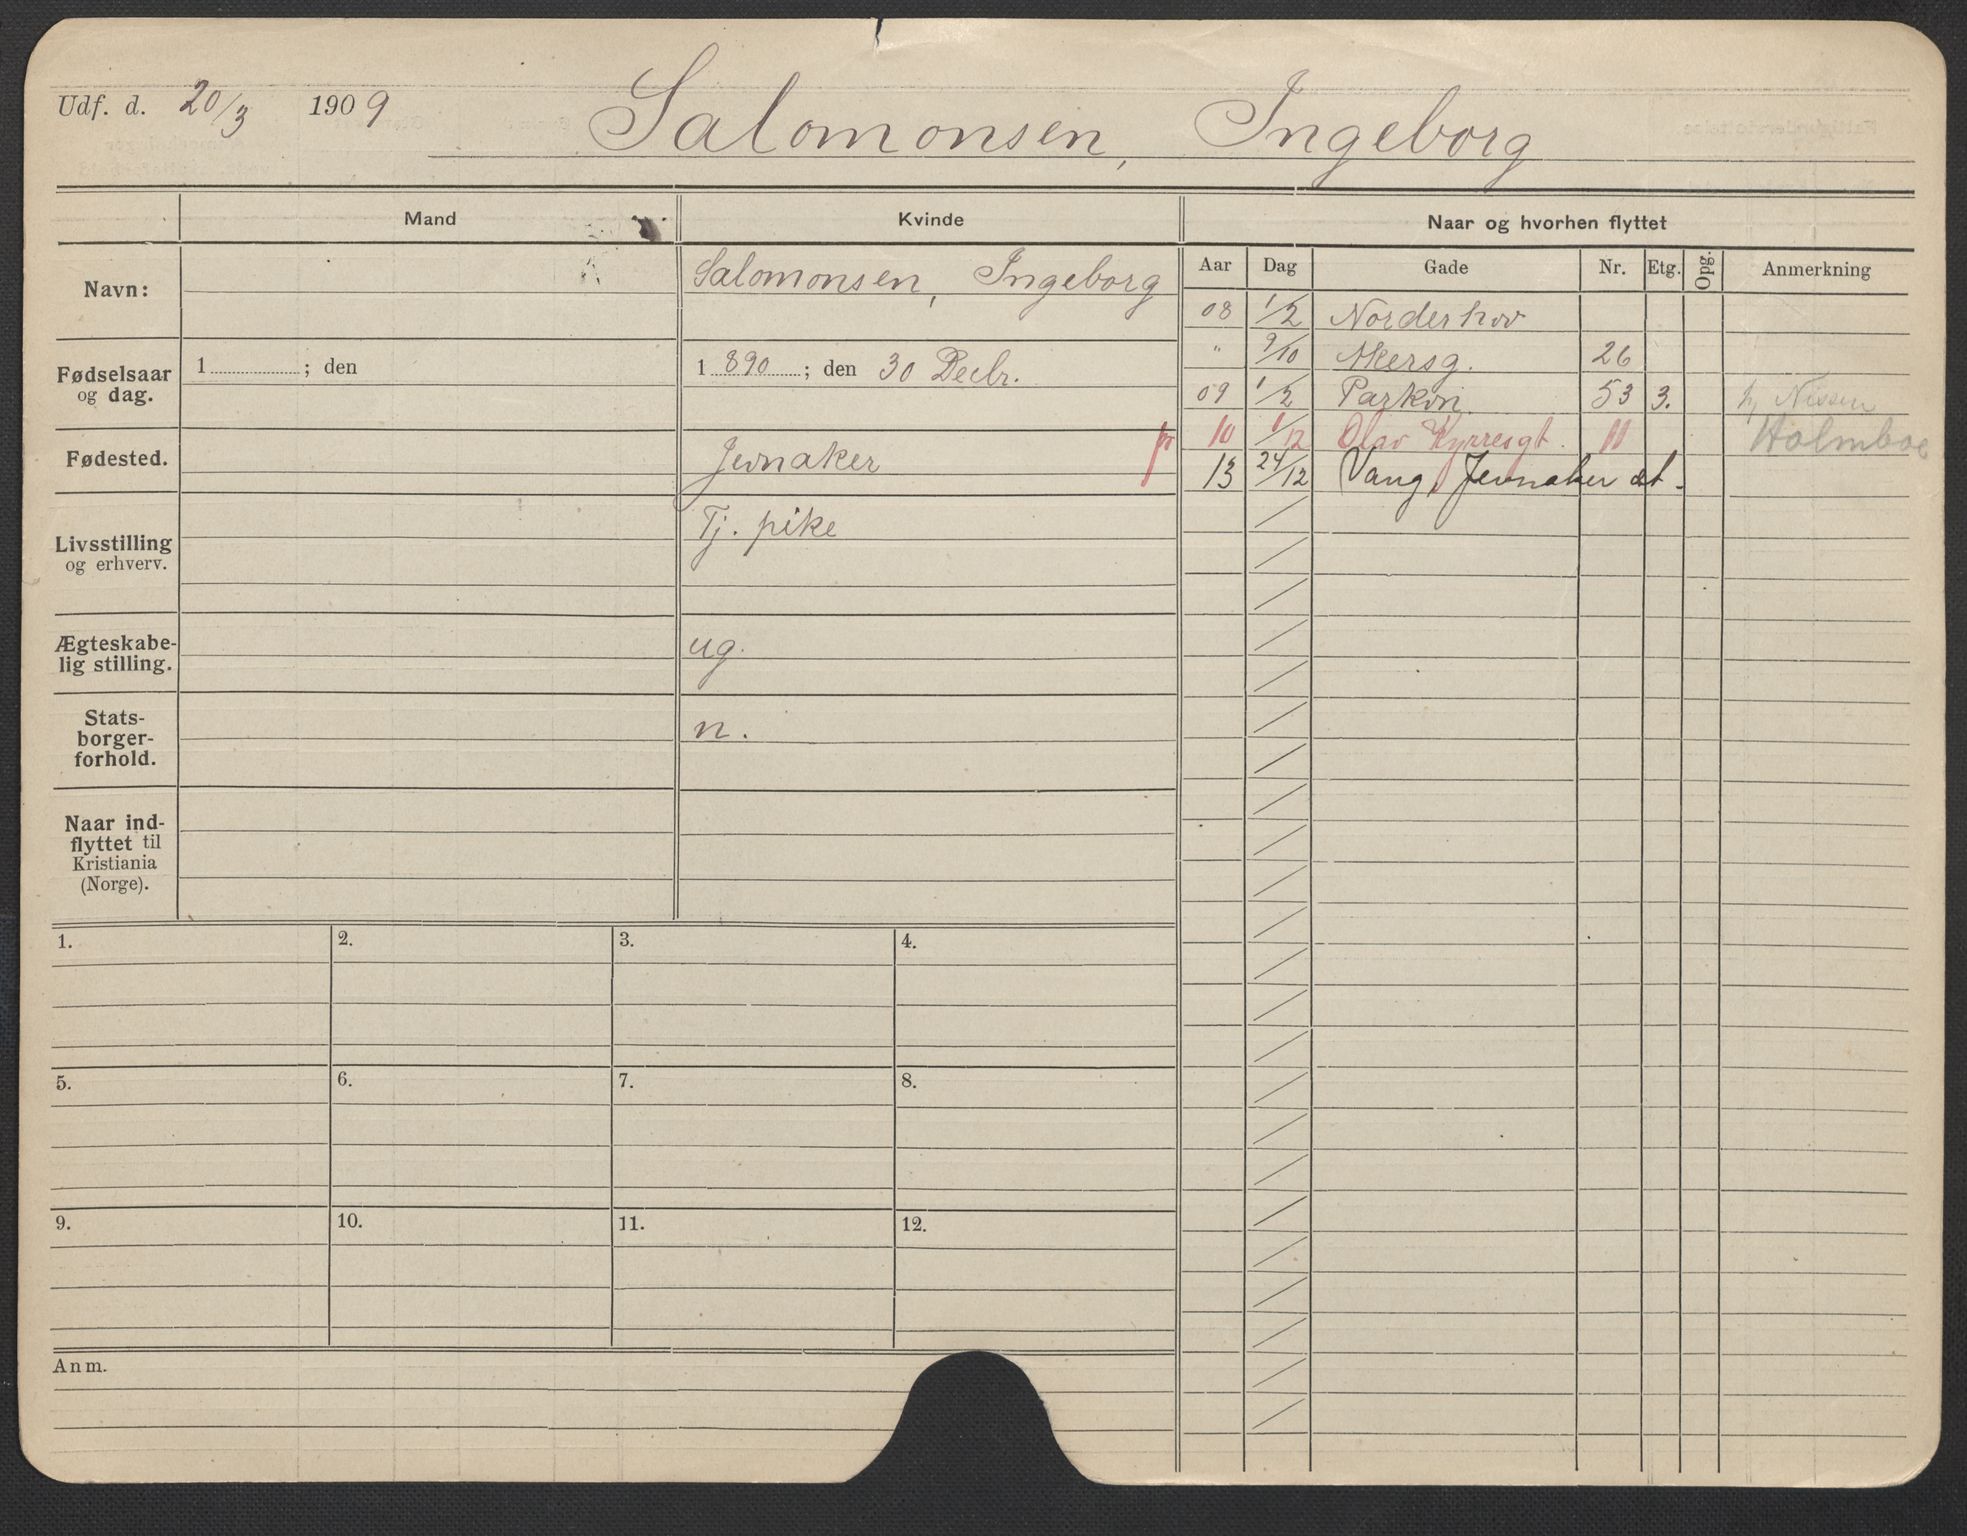 Udf. d. 20/3 1909 Salomonsen, Ingeborg
Mand Kvinde Naar og hvorhen flyttet
Navn: Salomonsen, Ingeborg
Aar Dag Gade Nr. Etg. Opg. Anmerkning
08 1/2 Norderhov
" 9/10 Akersg. 26
09 1/2 Parkvn. 53 3. Nissen
10 1/12 Olav Kyrresgt. 11 Holmboe
13 24/12 Vang, Jevnaker st.
Fødselsaar
og dag.
1 ; den
1 890 ; den 30 Decbr.
Fødested. Jevnaker
Livsstilling
og erhverv.
Tj. pike
Ægteskabe-
lig stilling.
ug.
Stats-
borger-
forhold.
n.
Naar ind-
flyttet til
Kristiania
(Norge).
1. 2. 3. 4.
5. 6. 7. 8.
9. 10. 11. 12.
Anm.